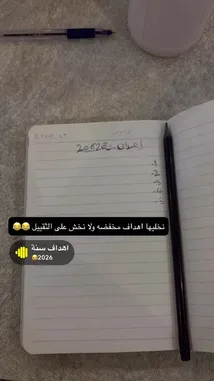 اهداف سنة 2026
1-
2-
3-
4-
5-
نخليها اهداف مخفضه ولا نخش على الثقييل😂😂
اهداف سنة
2026😂